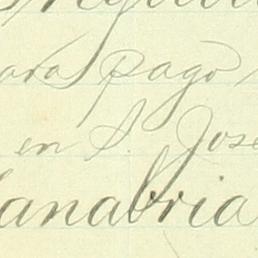 para pago
en S. José
Sanabria